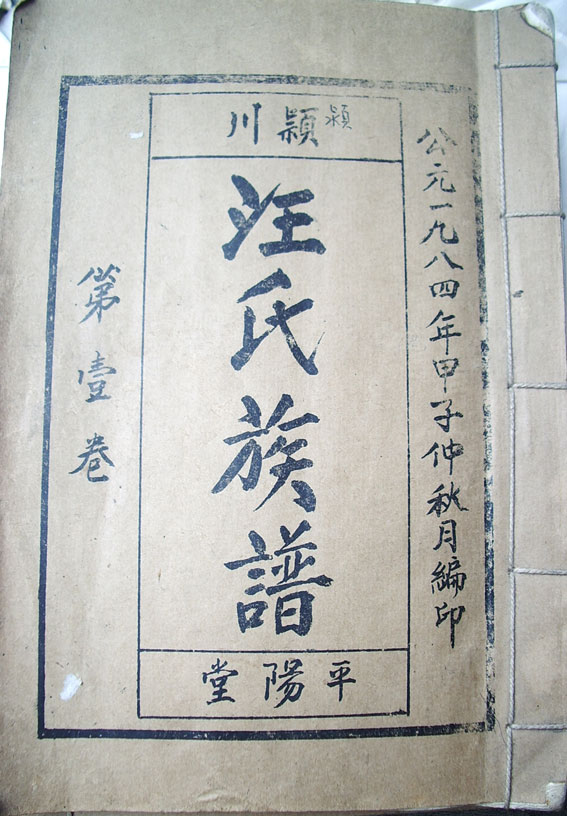 公元一九八四年甲子仲秋月編印
潁
頴川
汪氏族譜
平陽堂
第壹卷